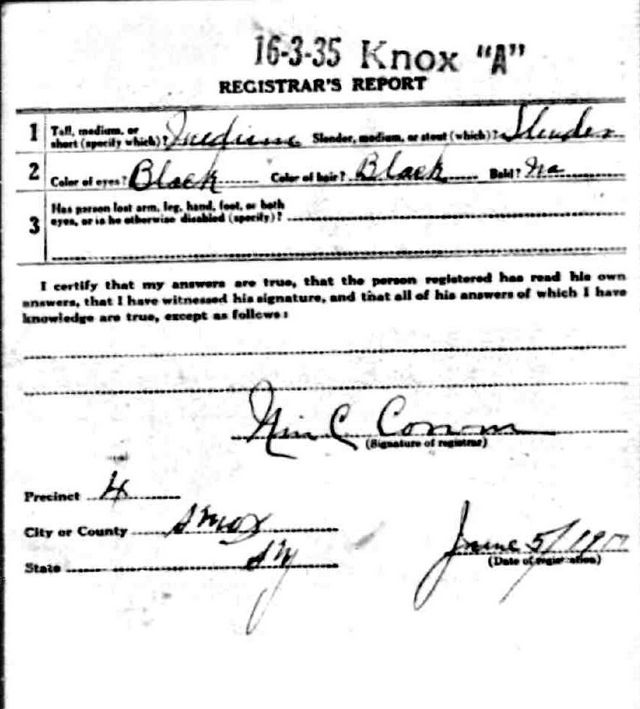 16-3-35 Knox "A"
REGISTRAR'S REPORT
1 Tall, medium, or
short (specify which)? Medium Slender, medium, or stout (which)? Slender
2 Color of eyes? Black Color of hair? Black Bald? No
3 Has person lost arm, leg, hand, foot, or both
eyes, or is he otherwise disabled (specify)?
I certify that my answers are true, that the person registered has read his own
answers, that I have witnessed his signature, and that all of his answers of which I have
knowledge are true, except as follows:
C
(Signature of registrar)
Precinct 4
City or County Knox
State Ky
June 5/1917
(Date of registration)